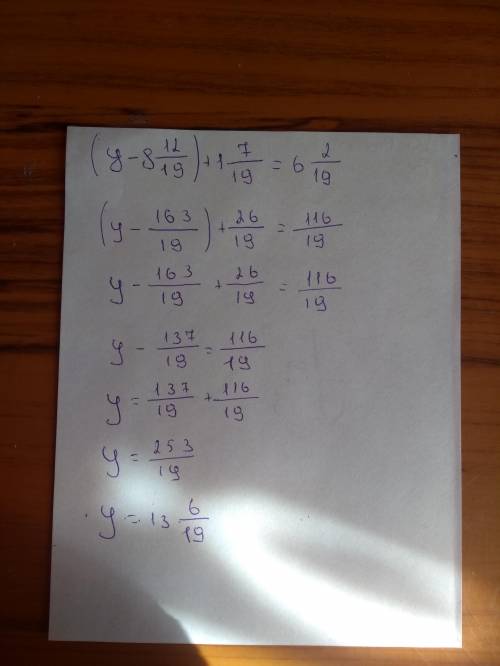 (y - 8 12/19) + 1 7/19 = 6 2/19
(y - 163/19) + 26/19 = 116/19
y - 163/19 + 26/19 = 116/19
y - 137/19 = 116/19
y = 137/19 + 116/19
y = 253/19
y = 13 6/19